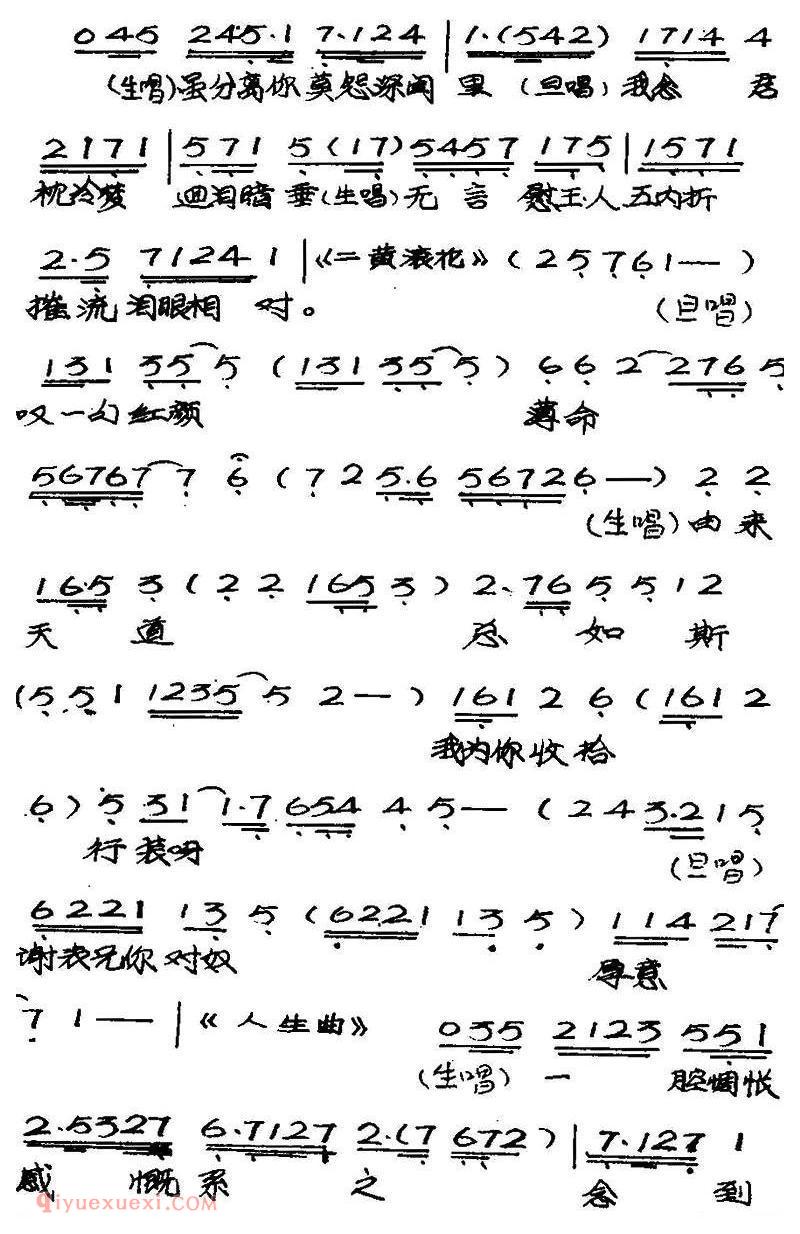 0 4 5 2 4 5 · 1 7 · 1 2 4 | 1 · ( 5 4 2 ) 1 7 1 4 4
(生唱)虽分离你莫怨深闺里 (旦唱) 我念 君
2 1 7 1 | 5 7 1 5 ( 1 7 ) 5 4 5 7 1 7 5 | 1 5 7 1
枕冷梦 迴泪暗垂(生唱)无言慰玉人五内折
2 · 5 7 1 2 4 1 | 《二黄滚花》 ( 2 5 7 6 1 — — )
摧流泪眼相对。 (旦唱)
1 3 1 3 5 5 ( 1 3 1 3 5 5 ) 6 6 2 2 7 6 5
叹一句红颜 薄命
5 6 7 6 7 7 6 ( 7 2 5 · 6 5 6 7 2 6 — ) 2 2
(生唱)由来
1 6 · 5 3 ( 2 2 1 6 5 3 ) 2 · 7 6 5 5 1 2
天道 总如斯
( 5 5 1 1 2 3 5 5 2 — ) 1 6 1 2 6 ( 1 6 1 2
我为你收拾
6 ) 5 3 1 1 · 7 6 5 4 4 5 — ( 2 4 3 · 2 1 5
行装呀 (旦唱)
6 2 2 1 1 3 5 ( 6 2 2 1 1 3 5 ) 1 1 4 2 1 7
谢表兄你对奴 厚意
7 1 — — | 《人生曲》 0 3 5 2 1 2 3 5 5 1
(生唱) 一 腔惆怅
2 · 5 3 2 7 6 · 7 1 2 7 2 · ( 7 6 7 2 ) | 7 · 1 2 7 1
感慨系之 念到
qiyuexuexi.com